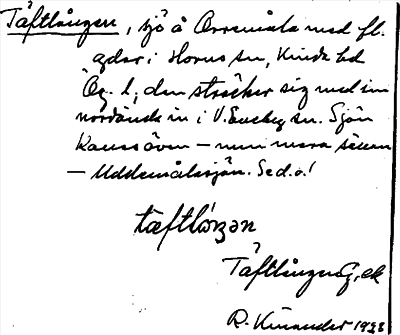 Täftlången, sjö å Orremåla med fl.
gdar i Horns sn, Kinda hd
Ög. l; den sträcker sig med sin
nordände in i V. Eneby sn. Sjön
kallas även – men mera sällan
– Uddemålasjön. Se d. o.!
tæftlåŋən
Täftlången Sj, ek
R. Kinander 1928